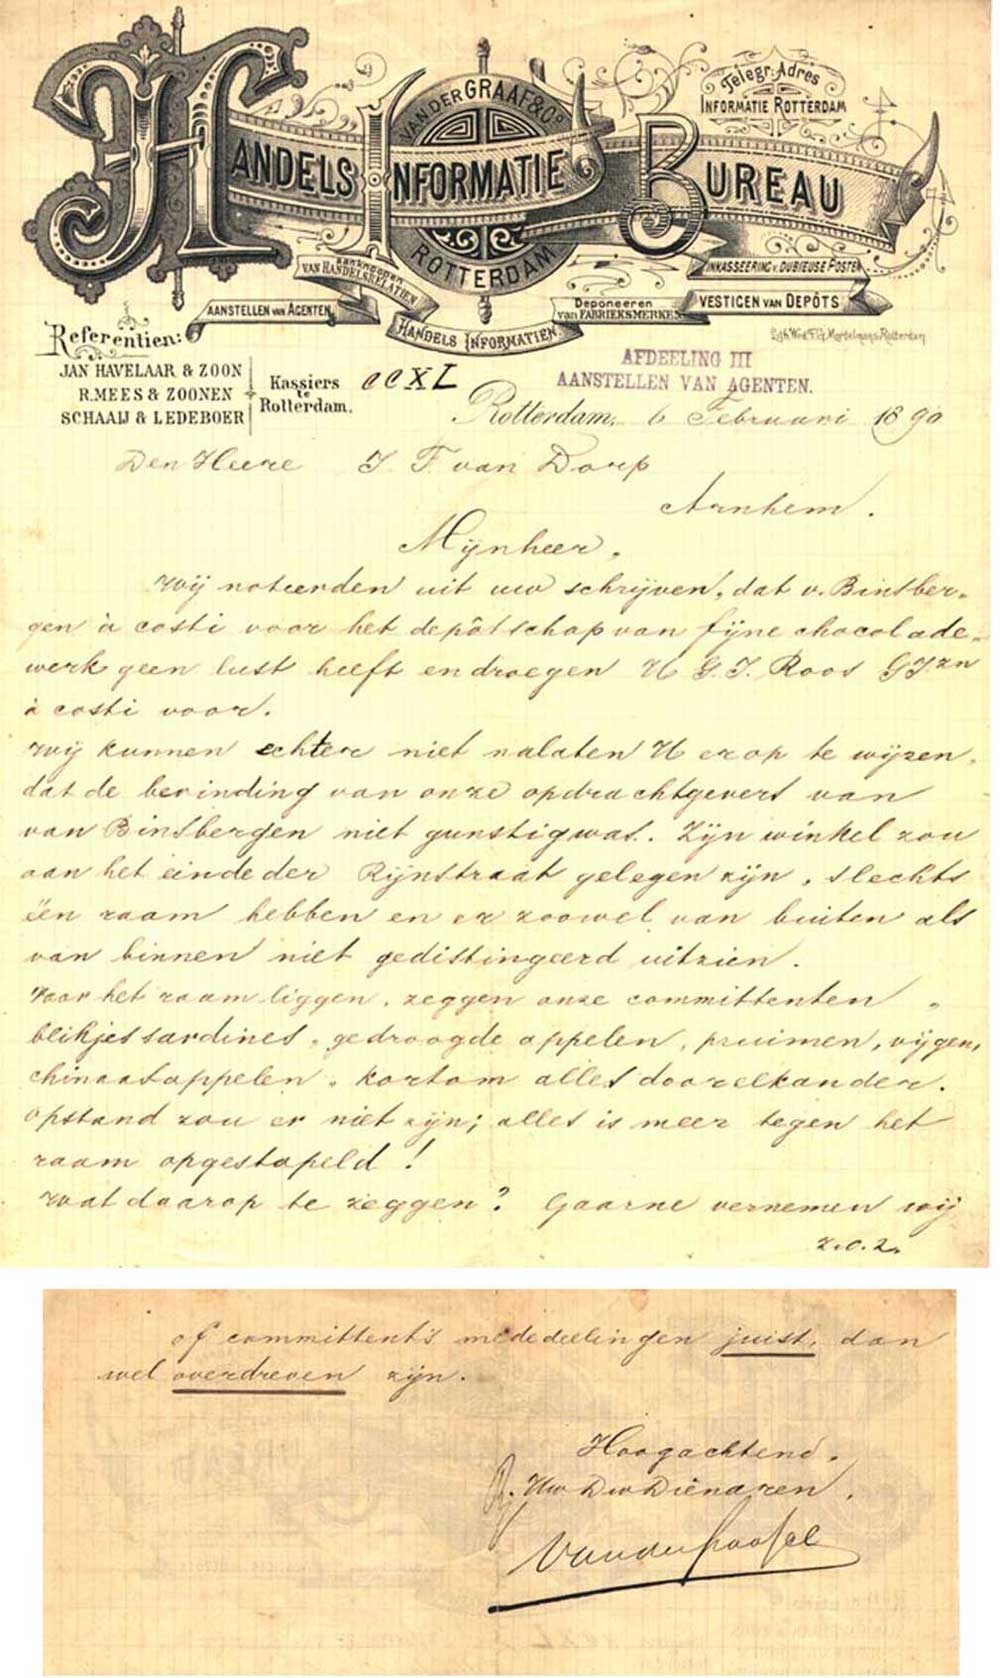 Telegr. Adres
Informatie Rotterdam
van der Graaf & Co
Handels Informatie Bureau
Rotterdam
Aanknoopen van Handelsrelatien
Inkasseering v. Dubieuse Posten
Aanstellen van Agenten
Deponeeren van Fabrieksmerken
Vestigen van Depôts
Handels Informatien
Referentien:
Jan Havelaar & Zoon
R. Mees & Zoonen
Schaaij & Ledeboer
Kassiers te Rotterdam.
CCXL
AFDEELING III
AANSTELLEN VAN AGENTEN.
Rotterdam, 6 Februari 1890
Den Heere J F van Dorp
Arnhem.
Mijnheer,
Wij noteerden uit uw schrijven, dat v. Binsber-
gen à costi voor het depôtschap van fijne chocolade-
werk geen lust heeft en droegen U G. J. Roos GJzn
à costi voor.
Wij kunnen echter niet nalaten U er op te wijzen,
dat de bevinding van onze opdrachtgevers van
van Binsbergen niet gunstig was. Zijn winkel zou
aan het einde der Rijnstraat gelegen zijn, slechts
één raam hebben en er zoowel van buiten als
van binnen niet gedistingeerd uitzien.
Voor het raam liggen, zeggen onze committenten,
blikjes sardines, gedroogde appelen, pruimen, vijgen,
chinaasappelen, kortom alles door elkander.
Opstand zou er niet zijn; alles is meer tegen het
raam opgestapeld!
Wat daarop te zeggen? Gaarne vernemen wij
z.o.z.
of committent's mededeelingen juist, dan
wel overdreven zijn.
Hoogachtend,
Uw Dw Dienaren,